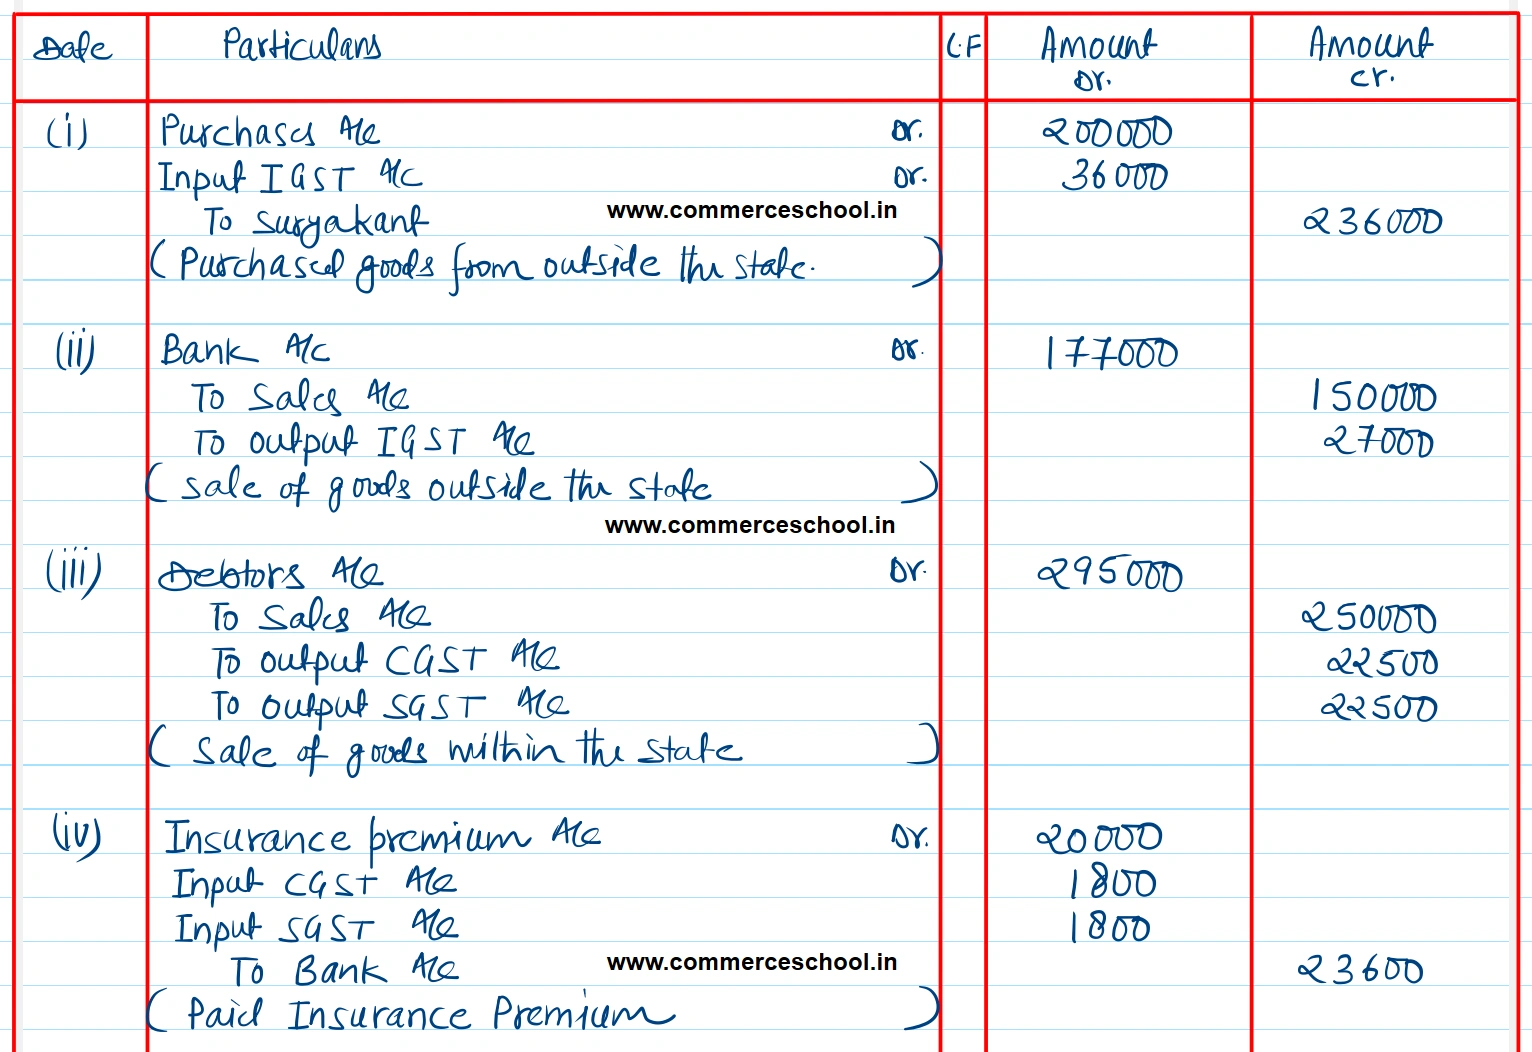 Date Particulars L.F Amount Dr. Amount cr.
(i) Purchases A/c Dr. 200000
Input IGST A/c Dr. 36000
To Suryakant 236000
www.commerceschool.in
(Purchased goods from outside the state.)
(ii) Bank A/c Dr. 177000
To Sales A/c 150000
To output IGST A/c 27000
(sale of goods outside the state)
www.commerceschool.in
(iii) Debtors A/c Dr. 295000
To Sales A/c 250000
To output CGST A/c 22500
To output SGST A/c 22500
(Sale of goods within the state)
(iv) Insurance premium A/c Dr. 20000
Input CGST A/c 1800
Input SGST A/c 1800
To Bank A/c 23600
www.commerceschool.in
(Paid Insurance Premium)